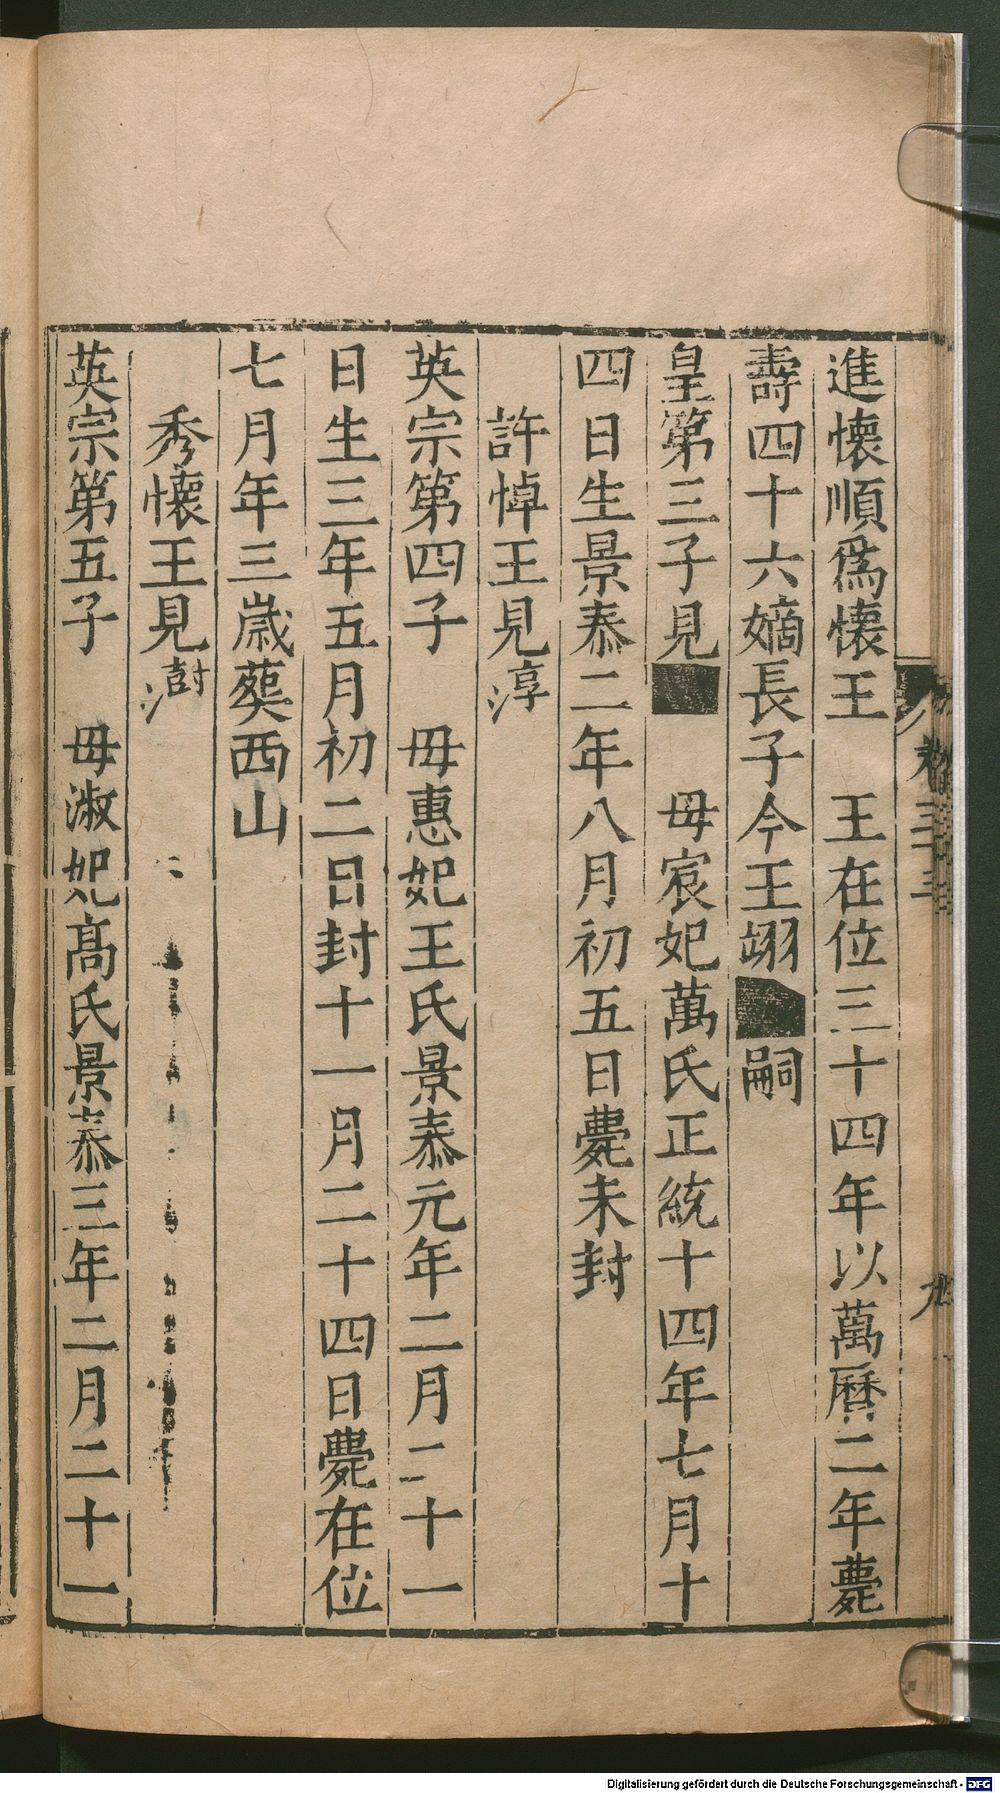 進懷順爲懷王　王在位三十四年以萬曆二年薨
壽四十六嫡長子今王翊■嗣
皇第三子見■　毋宸妃萬氏正統十四年七月十
四日生景泰二年八月初五日薨未封
許悼王見淳
英宗第四子　毋惠妃王氏景泰元年二月二十一
日生三年五月初二日封十一月二十四日薨在位
七月年三歲葬西山
秀懷王見澍
英宗第五子　毋淑妃高氏景泰三年二月二十一
Digitalisierung gefördert durch die Deutsche Forschungsgemeinschaft - DFG